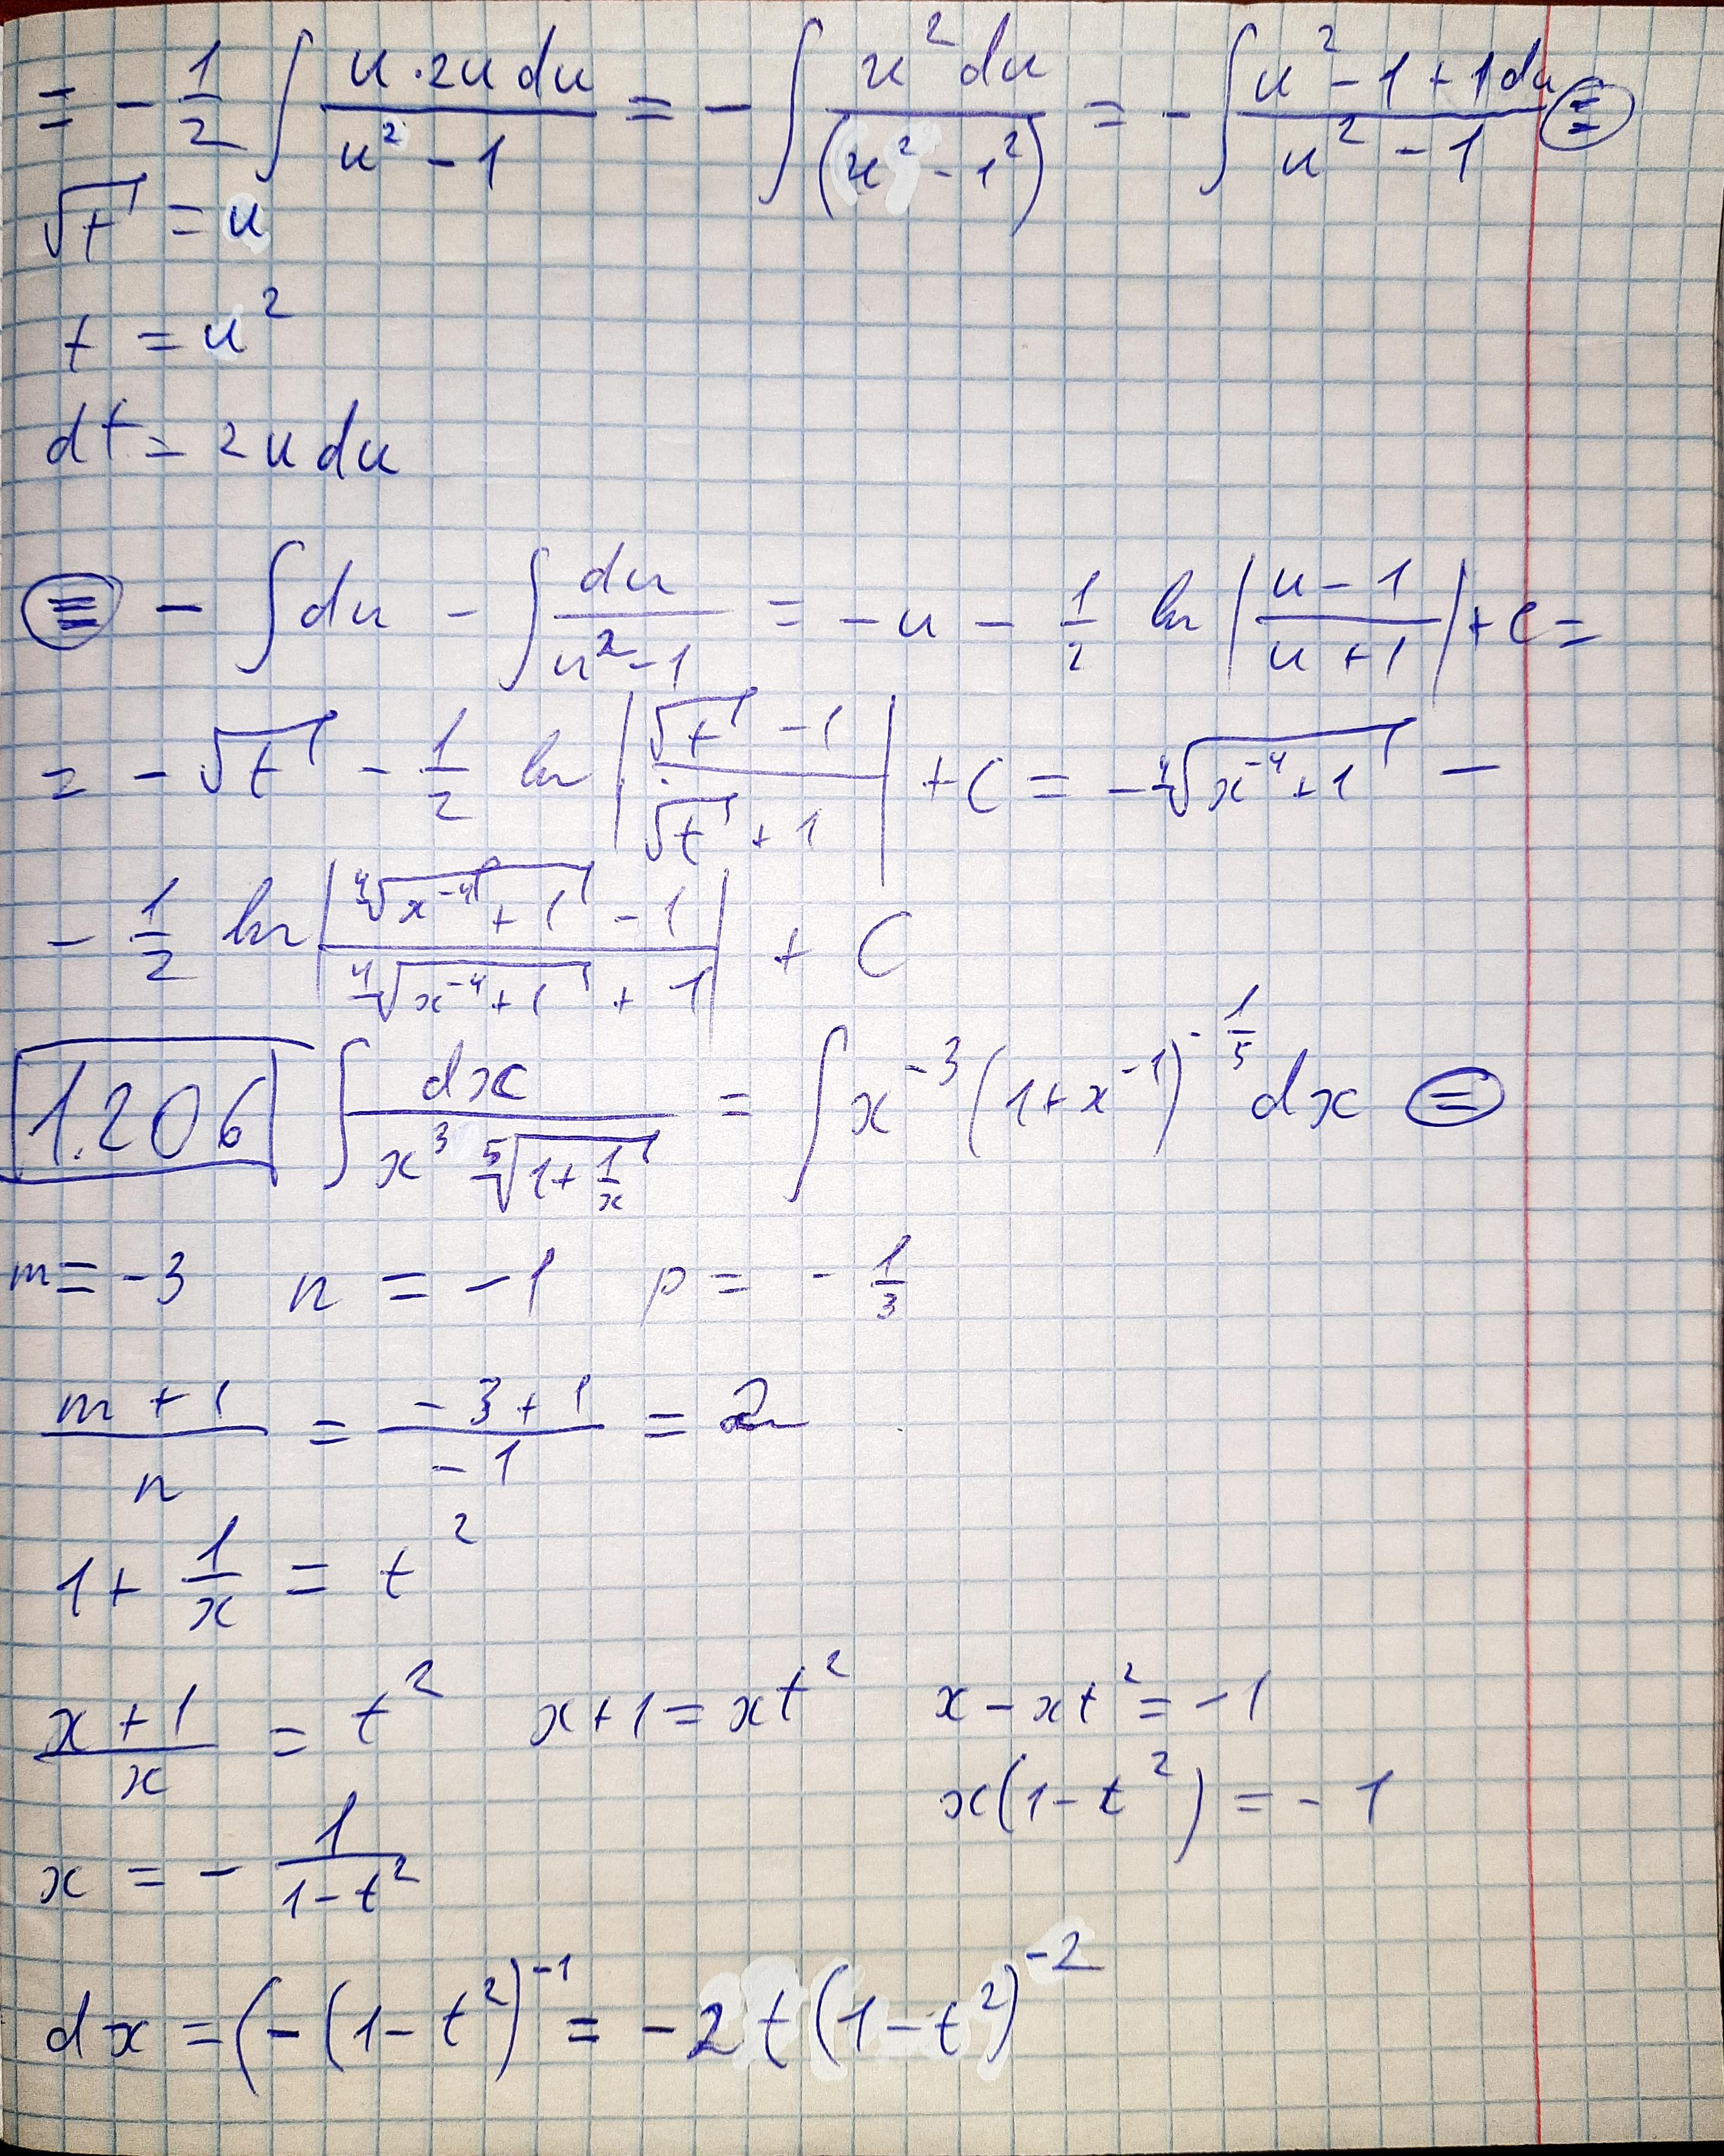 = - 1/2 ∫ u·2u du / u² - 1 = - ∫ u² du / (u² - 1²) = - ∫ u² - 1 + 1 du / u² - 1 ≡
√t = u
t = u²
dt = 2u du
≡ - ∫ du - ∫ du / u² - 1 = - u - 1/2 ln | u - 1 / u + 1 | + C =
= - √t - 1/2 ln | √t - 1 / √t + 1 | + C = - ⁴√x⁻⁴ + 1 -
- 1/2 ln | ⁴√x⁻⁴ + 1 - 1 / ⁴√x⁻⁴ + 1 + 1 | + C
1.206 ∫ dx / x³ ⁵√1 + 1/x = ∫ x⁻³ (1 + x⁻¹)^(-1/5) dx =
m = -3 n = -1 p = - 1/3
m + 1 / n = -3 + 1 / -1 = 2
1 + 1/x = t²
x + 1 / x = t² x + 1 = xt² x - xt² = -1
x(1 - t²) = -1
x = - 1 / 1 - t²
dx = (-(1 - t²)⁻¹ = -2t(1 - t²)⁻²